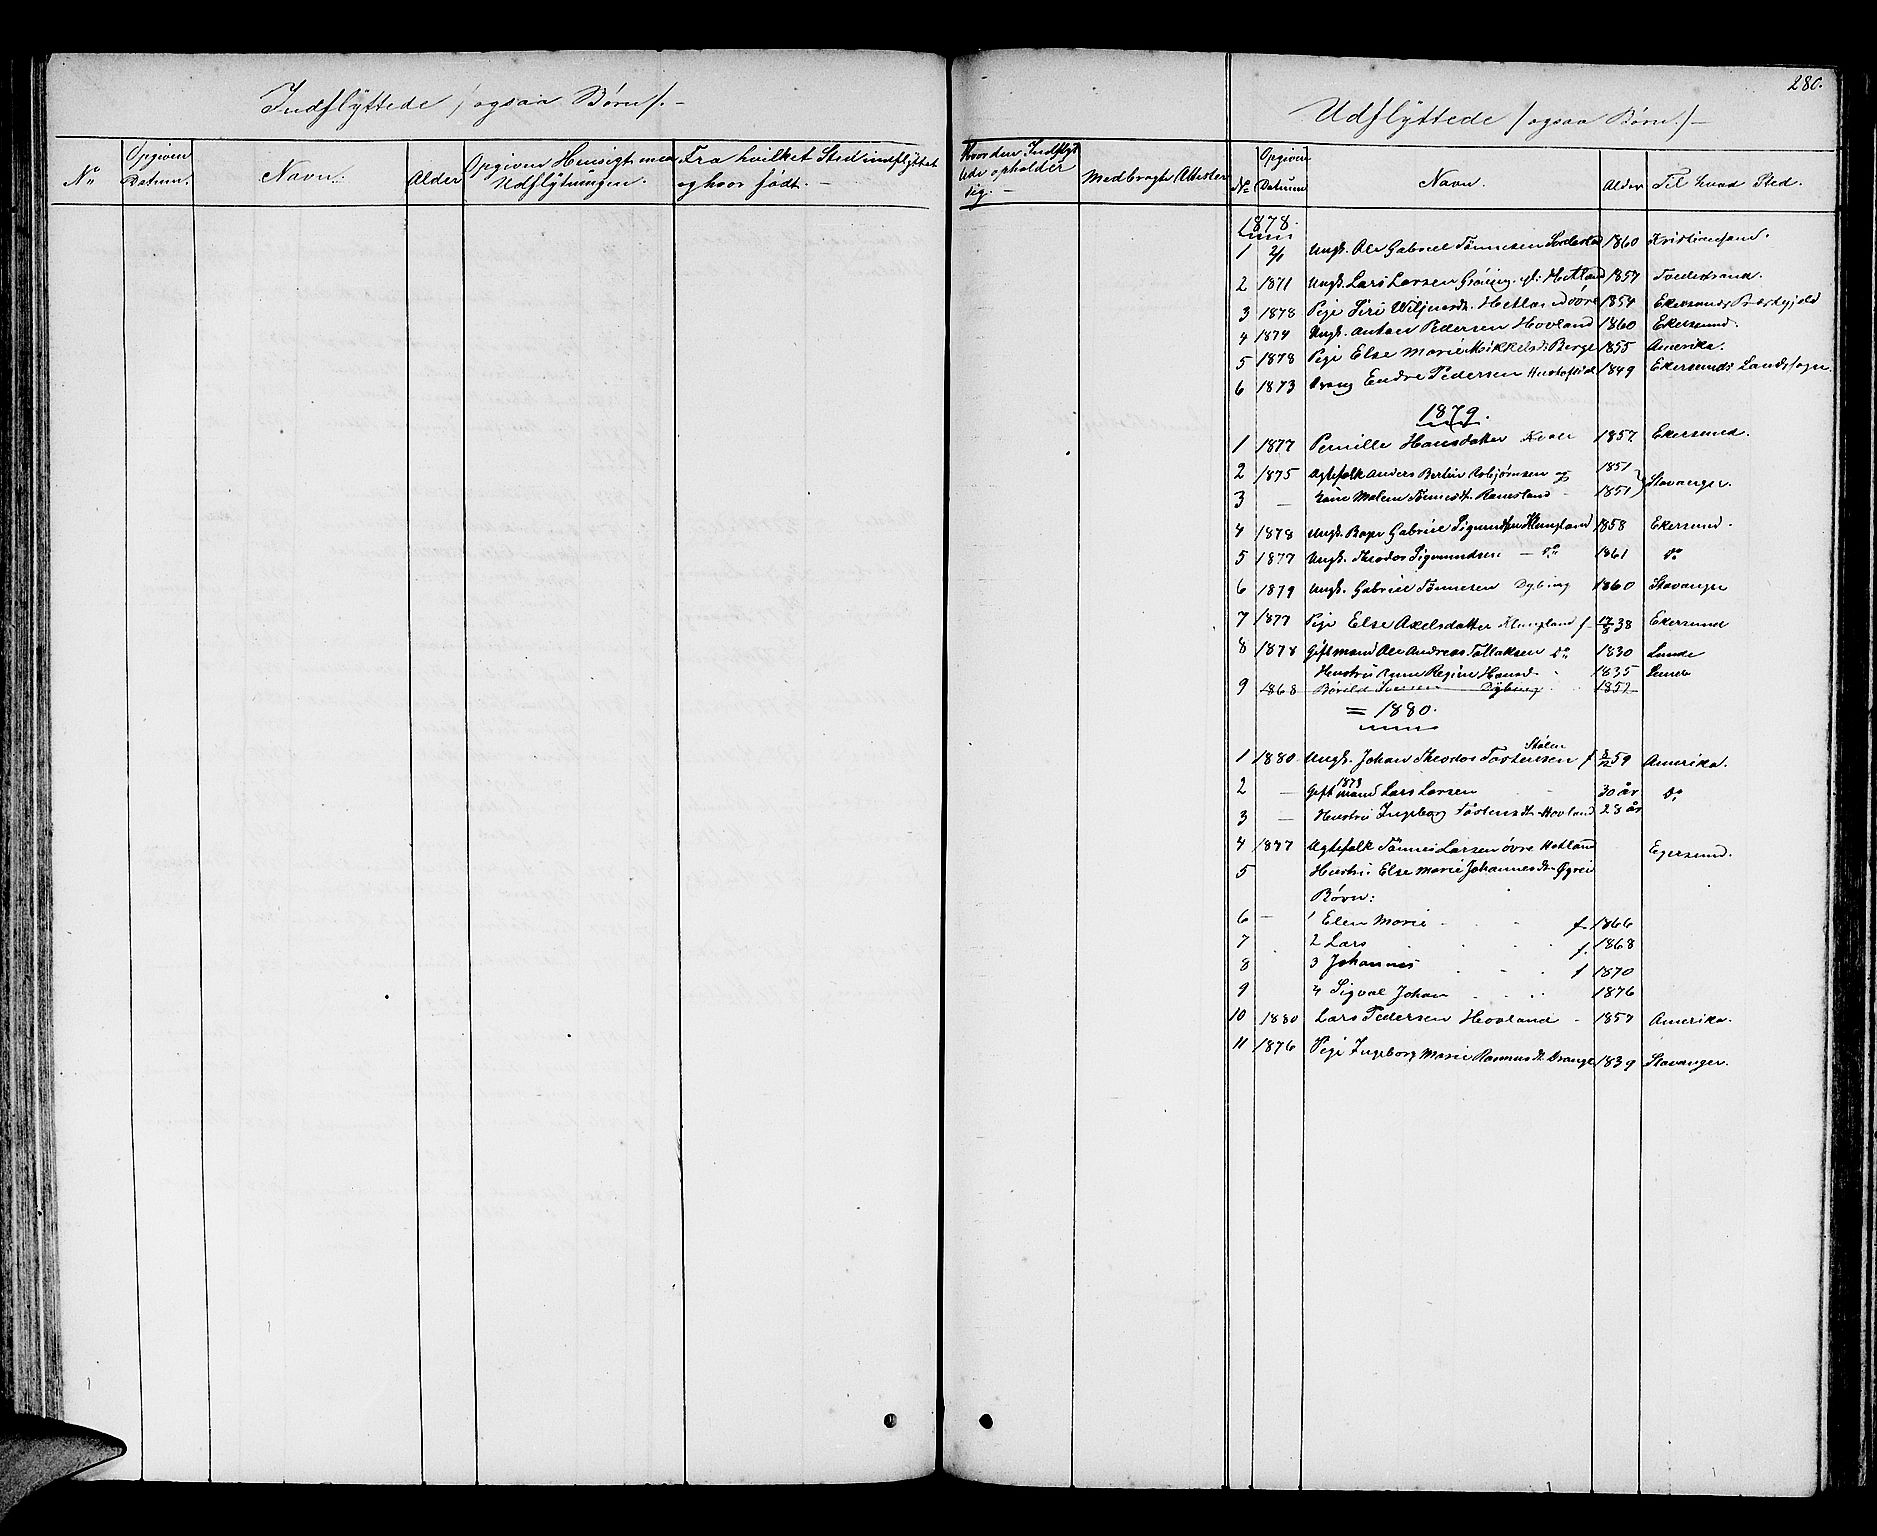 Indflyttede /ogsaa Børn/.-
No Opgiven Datum. Navn. Alder Opgiven Hensigt med Udflytningen. Fra hvilket Sted indflyttet og hvor født. -
280.
Udflyttede /ogsaa Børn/-
Hvor den Indflyttede opholder sig. - Medbragte Attester No Opgiven Datum Navn. Alder Til hvad Sted.
1878.
1 Ungk. Ole Gabriel Tønnesen 1860 Kristiansand.
2 1871 Ungk. Lars Larsen Hetland 1857 Tvedestrand.
3 1878 Pige Siri Hetland øvre 1854 Ekersunds
4 1874 Ungk. Anton Pedersen Hovland 1860 Ekersund.
5 1878 Pige Else Marie Mikkelsd. Berge 1855 Amerika.
6 1873 Dreng Endre Pedersen 1849 Ekersunds Landsogn.
1879.
1 1877 Pernille Hansdatter Kvale 1857 Ekersund.
2 1875 Ægtefolk Anders Bertin Asbjørnsen og 1851
3 — Malene Tønnesdt. Ramsland 1851 Stavanger.
4 1878 Ungk. Gabriel Sigmundsen Klungland 1858 Ekersund.
5 1877 Ungk. Theodor Sigmundsen — do 1861 do
6 1879 Ungk. Gabriel Tønnesen Dybing 1860 Stavanger
7 1877 Pige Else Axelsdatter Klungland f. 17/8 38 Ekersund
8 1878 Gift mand Ole Andreas Tollaksen do 1830 Lunde
Hustru Anne Regine Hansd. 1835 Lunde
9 1868 Dybing 1852
= 1880.
Stølen
1 1880. Ungk. Johan Theodor Tostensen f 59 Amerika.
1873
2 — Gift mand Lars Larsen 30 år do
3 — Hustru Ingeborg Tostensdt. Hovland 28 år
4 1877 Ægtefolk Tønnes Larsen øvre Hetland Egersund.
5 Hustru Else Marie Johannesdt. Øgrei
Børn:
6 — 1 Elen Marie f. 1866
7 2 Lars f. 1868
8 3 Johannes f 1870
9 4 Sigval Johan 1876
10 1880 Lars Pedersen Hovland - 1857 Amerika.
11 1876 Pige Ingeborg Marie Rasmusdt. Drange 1839 Stavanger.